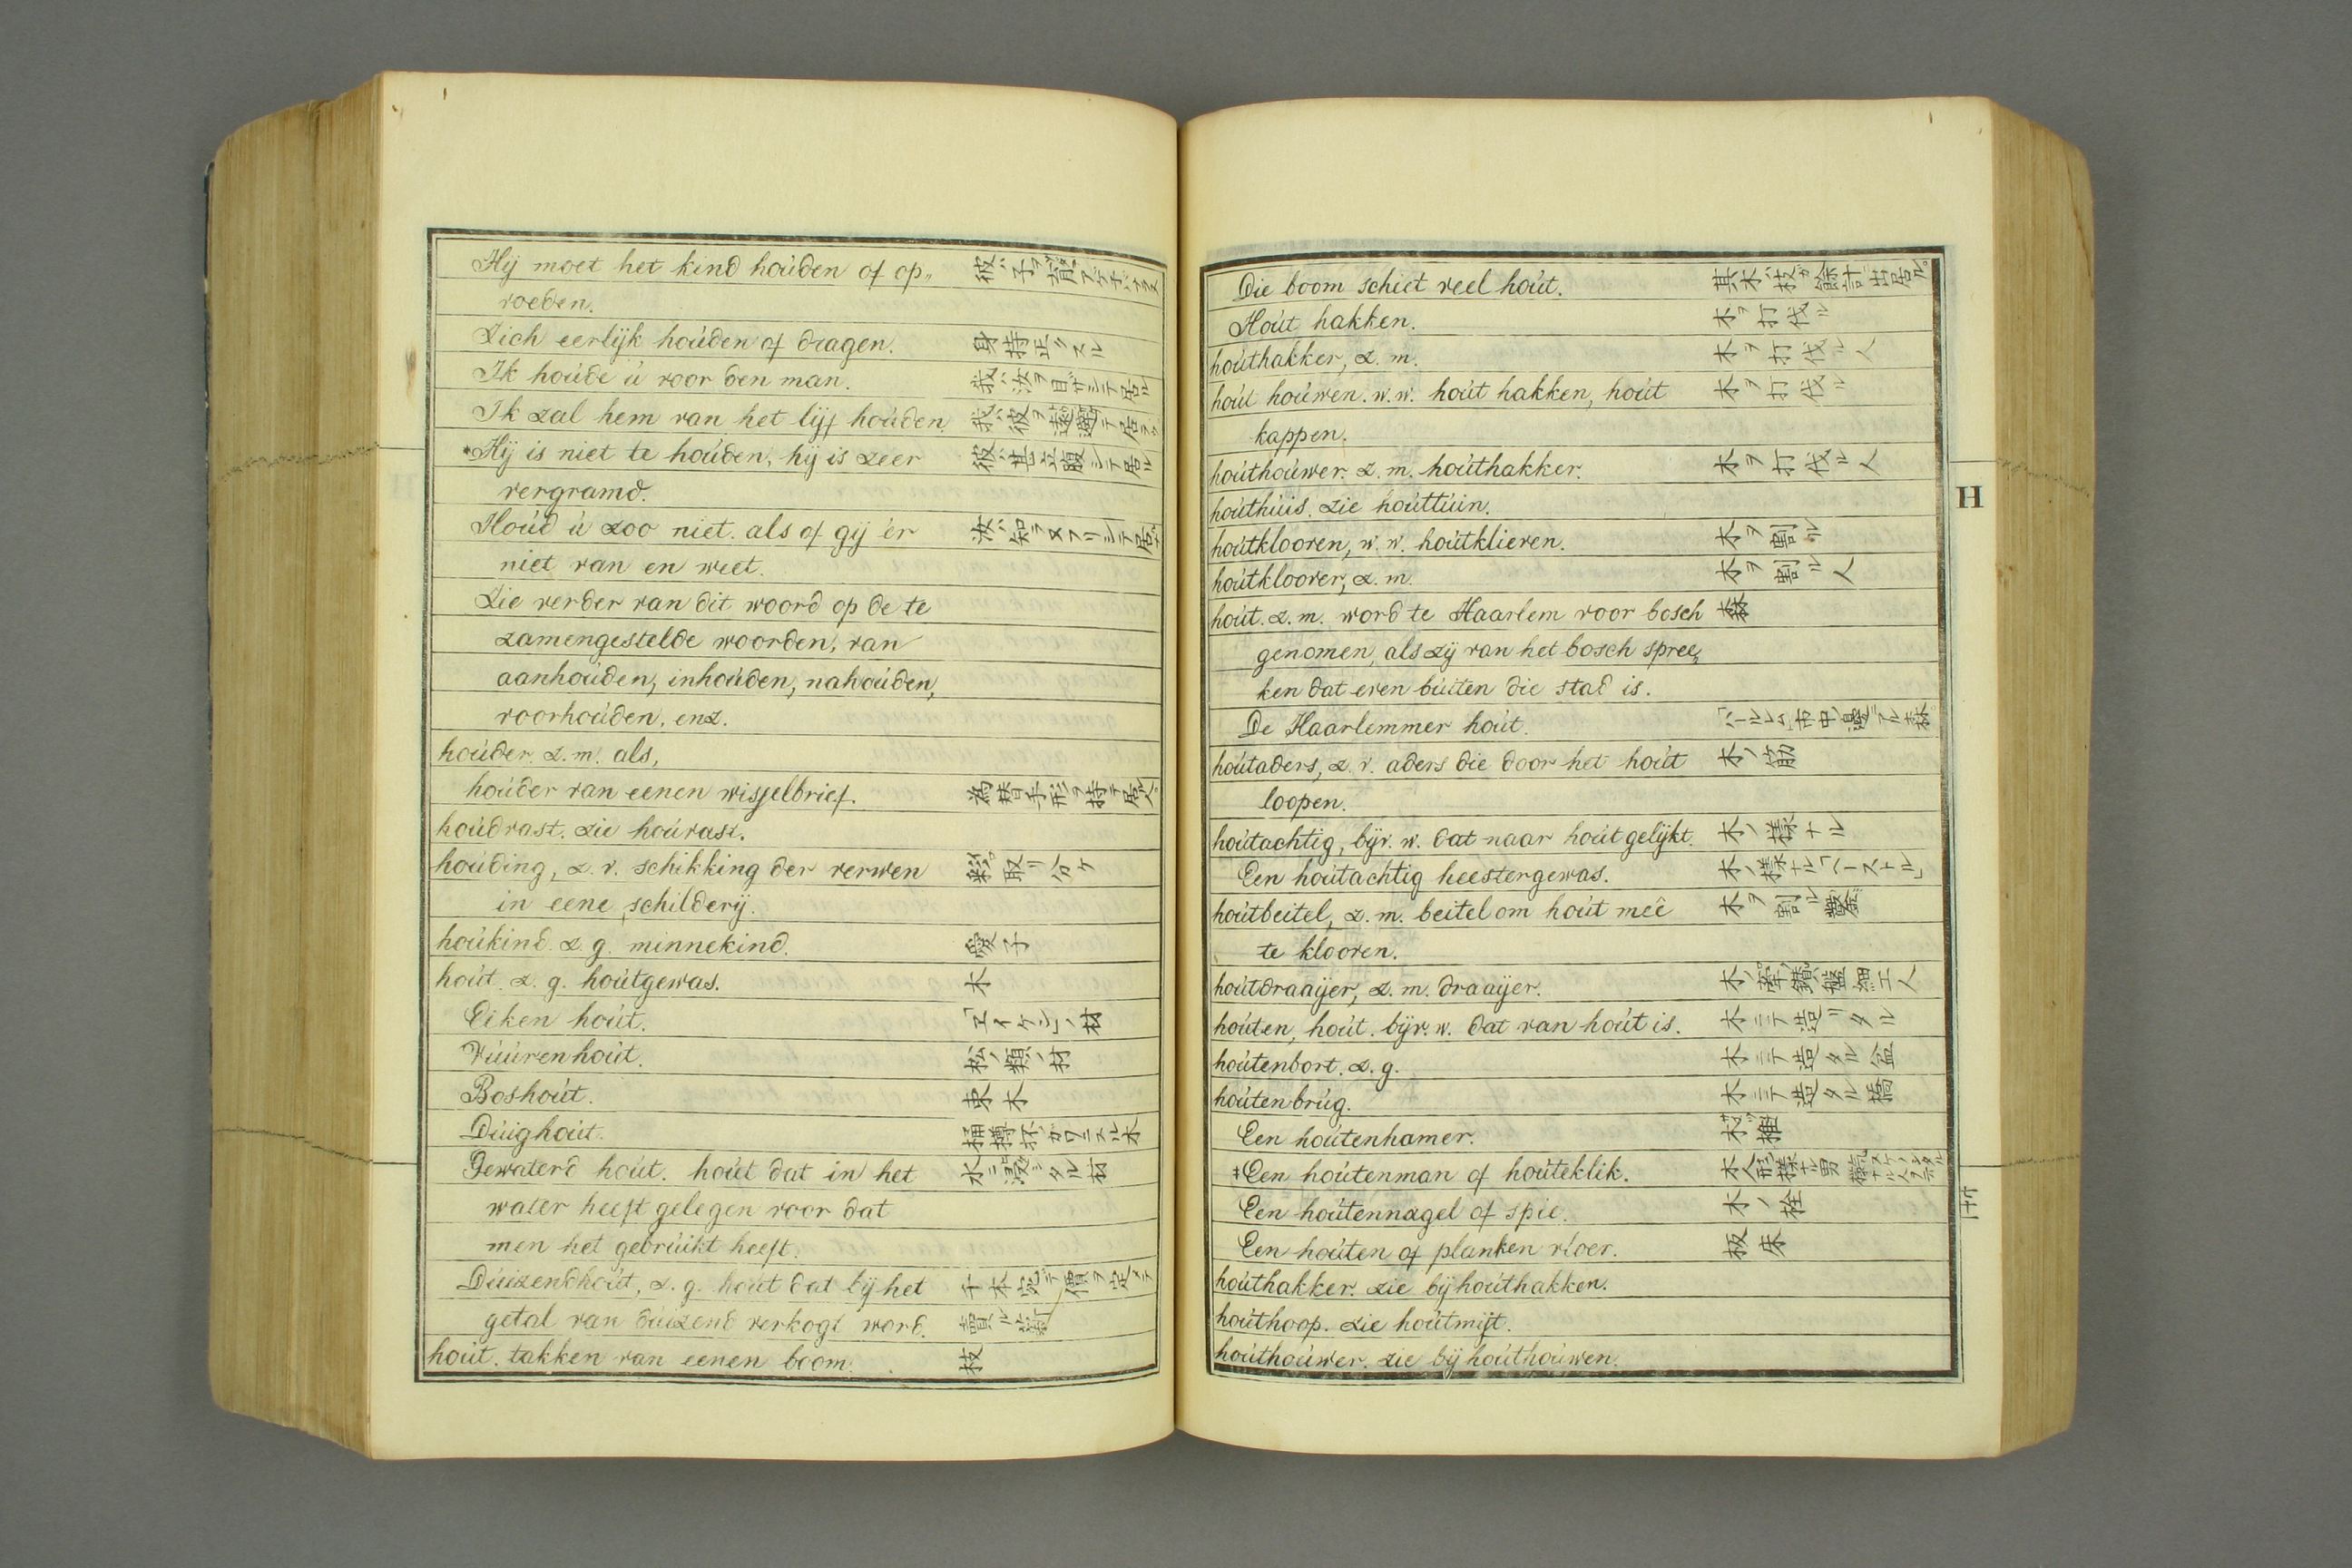 Hij moet het kind houden of op„
voeden.
Zich eerlijk houden of dragen. 身持正クスル
Ik houde u voor den man. 我ハ汝ヲ目ザシテ居ル
Ik zal hem van het lijf houden.
*Hij is niet te houden, hij is zeer 彼ハ甚立腹シテ居ル
vergramd.
Houd u zoo niet. als of gij er 汝ハ知ラヌフリシテ居ル
niet van en weet.
Zie verder van dit woord op de te
zamengestelde woorden, van
aanhouden, inhouden, nahouden,
voorhouden, enz.
houder. z. m. als,
houder van eenen wisselbrief. 為替手形ヲ持テ居人
houdvast. zie houvast.
houding, z. v. schikking der verwen 彩取リ合ケ
in eene schilderij.
houkind. z. g. minnekind. 愛子
hout. z. g. houtgewas. 木
Eiken hout. 「エイケン」ノ材
Vuurenhout. 松ノ類ノ材
Boshout. 束木
Duighout. 桶樽杯ガワニスル木
Gewaterd hout. hout dat in het 水ニ浸シタル材
water heeft gelegen voor dat
men het gebruikt heeft.
Duizendhout, z. g. hout dat bij het 千本宛ニテ價ヲ定メテ
getal van duizend verkogt word. 賣ル薪
hout. takken van eenen boom. 枝
Die boom schiet veel hout. 其木ハ枝ガ餘計出居ル。
Hout hakken. 木ヲ打伐ル
houthakker, z. m. 木ヲ打伐ル人
hout houwen. w. w. hout hakken, hout 木ヲ打伐ル
kappen.
houthouwer. z. m. houthakker. 木ヲ打伐ル人
houthuis. zie houttuin.
houtklooven, w. w. houtklieven. 木ヲ割ル
houtkloover, z. m. 木ヲ割ル人
hout. z. m. word te Haarlem voor bosch 森
genomen, als zij van het bosch spree„
ken dat even buiten die stad is.
De Haarlemmer hout. 「ハールレム」市中ノ邊ニアル森。
houtaders, z. v. aders die door het hout 木ノ筋
loopen.
houtachtig, bijv. w. dat naar hout gelijkt. 木ノ様ナル
Een houtachtig heestergewas. 木ノ様ナル「ヘーストル」
houtbeitel, z. m. beitel om hout meê 木ヲ割ル鑿
te klooven.
houtdraaijer, z. m. draaijer.
houten, hout. bijv. w. dat van hout is. 木ニテ造リタル
houtenbort. z. g. 木ニテ造タル盆
houtenbrug. 木ニテ造タル橋
Een houtenhamer. 木推
‡Een houtenman of houteklik.
Een houtennagel of spie. 木ノ栓
Een houten of planken vloer. 板床
houthakker. zie bij houthakken.
houthoop. zie houtmijt.
houthouwer. zie bij houthouwen.
H